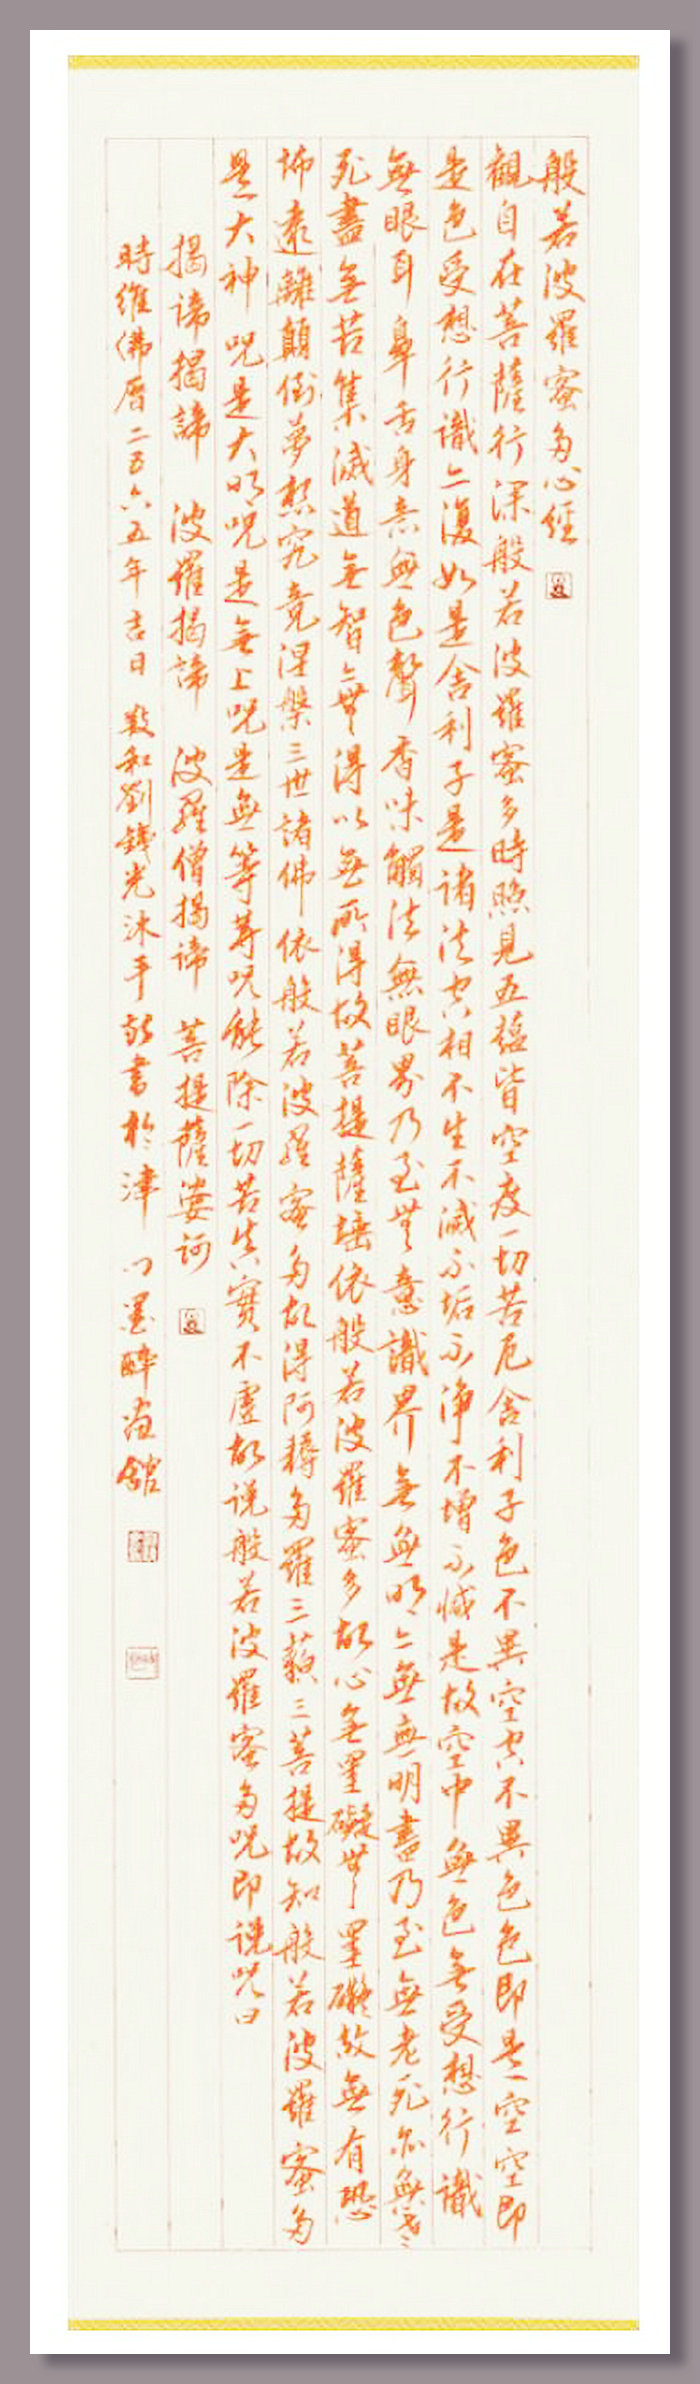 般若波羅蜜多心經
觀自在菩薩行深般若波羅蜜多時照見五蘊皆空度一切苦厄舍利子色不異空空不異色色即是空空即
是色受想行識亦復如是舍利子是諸法空相不生不滅不垢不淨不增不減是故空中無色無受想行識
無眼耳鼻舌身意無色聲香味觸法無眼界乃至無意識界無無明亦無無明盡乃至無老死亦無老
死盡無苦集滅道無智亦無得以無所得故菩提薩埵依般若波羅蜜多故心無罣礙無罣礙故無有恐
怖遠離顛倒夢想究竟涅槃三世諸佛依般若波羅蜜多故得阿耨多羅三藐三菩提故知般若波羅蜜多
是大神呪是大明呪是無上呪是無等等呪能除一切苦真實不虛故說般若波羅蜜多呪即說呪曰
揭諦揭諦 波羅揭諦 波羅僧揭諦 菩提薩婆訶
時維佛曆二五六五年吉日 劉鐵光沐手敬書於津門墨醉畫館